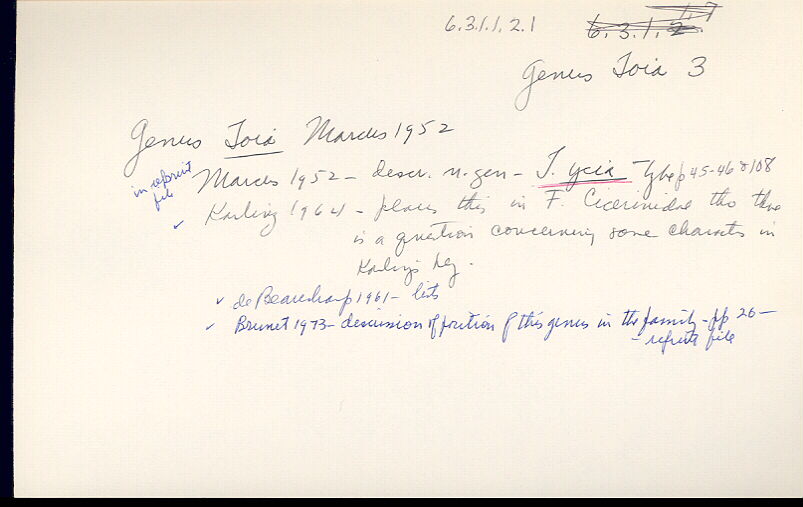 6.3.1.1.2.1
6.3.1.2 1.7
Genus Toia 3
Genus Toia Marcus 1952
in reprint
file
Marcus 1952 - descr. n. gen - T. ycia - type p 45-46 & 108
✓ Karling 1964 - places this in F. Cicerinidae tho there
is a question concerning some characters in
Karling's key.
✓ de Beauchamp 1961 - lists
✓ Brunet 1973 - discussion of position of this genus in the family - pp 26 -
- reprint file